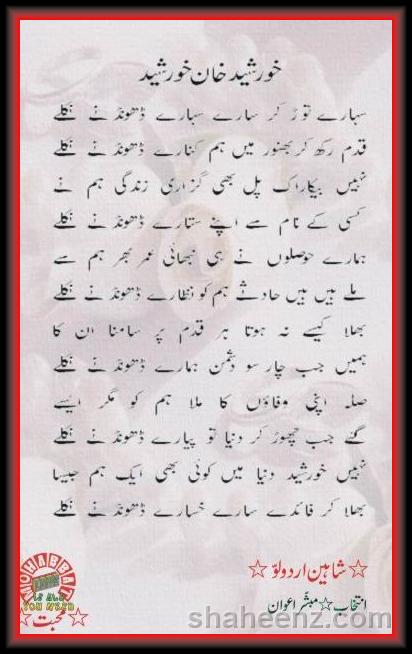 خورشید خان خورشید
سہارے توڑ کر سارے سہارے ڈھونڈنے نکلے
قدم رکھ کر بھنور میں ہم کنارے ڈھونڈنے نکلے
نہیں بیکار اک پل بھی گزاری زندگی ہم نے
کسی کے نام سے اپنے ستارے ڈھونڈنے نکلے
ہمارے حوصلوں نے ہی نبھائی عمر بھر ہم سے
ملے ہیں ہیں حادثے ہم کو نظارے ڈھونڈنے نکلے
بھلا کیسے نہ ہوتا ہر قدم پر سامنا ان کا
ہمیں جب چار سو دشمن ہمارے ڈھونڈنے نکلے
صلہ اپنی وفاؤں کا ملا ہم کو مگر ایسے
گئے جب چھوڑ کر دنیا تو پیارے ڈھونڈنے نکلے
نہیں خورشید دنیا میں کوئی بھی ایک ہم جیسا
بھلا کر فائدے سارے خسارے ڈھونڈنے نکلے
☆ شاہین اردو لوّ ☆
انتخاب ☆ مبشّر اعوان
shaheenz.com
MOHABBAT
IS ALL
YOU NEED
☆ محبت ☆